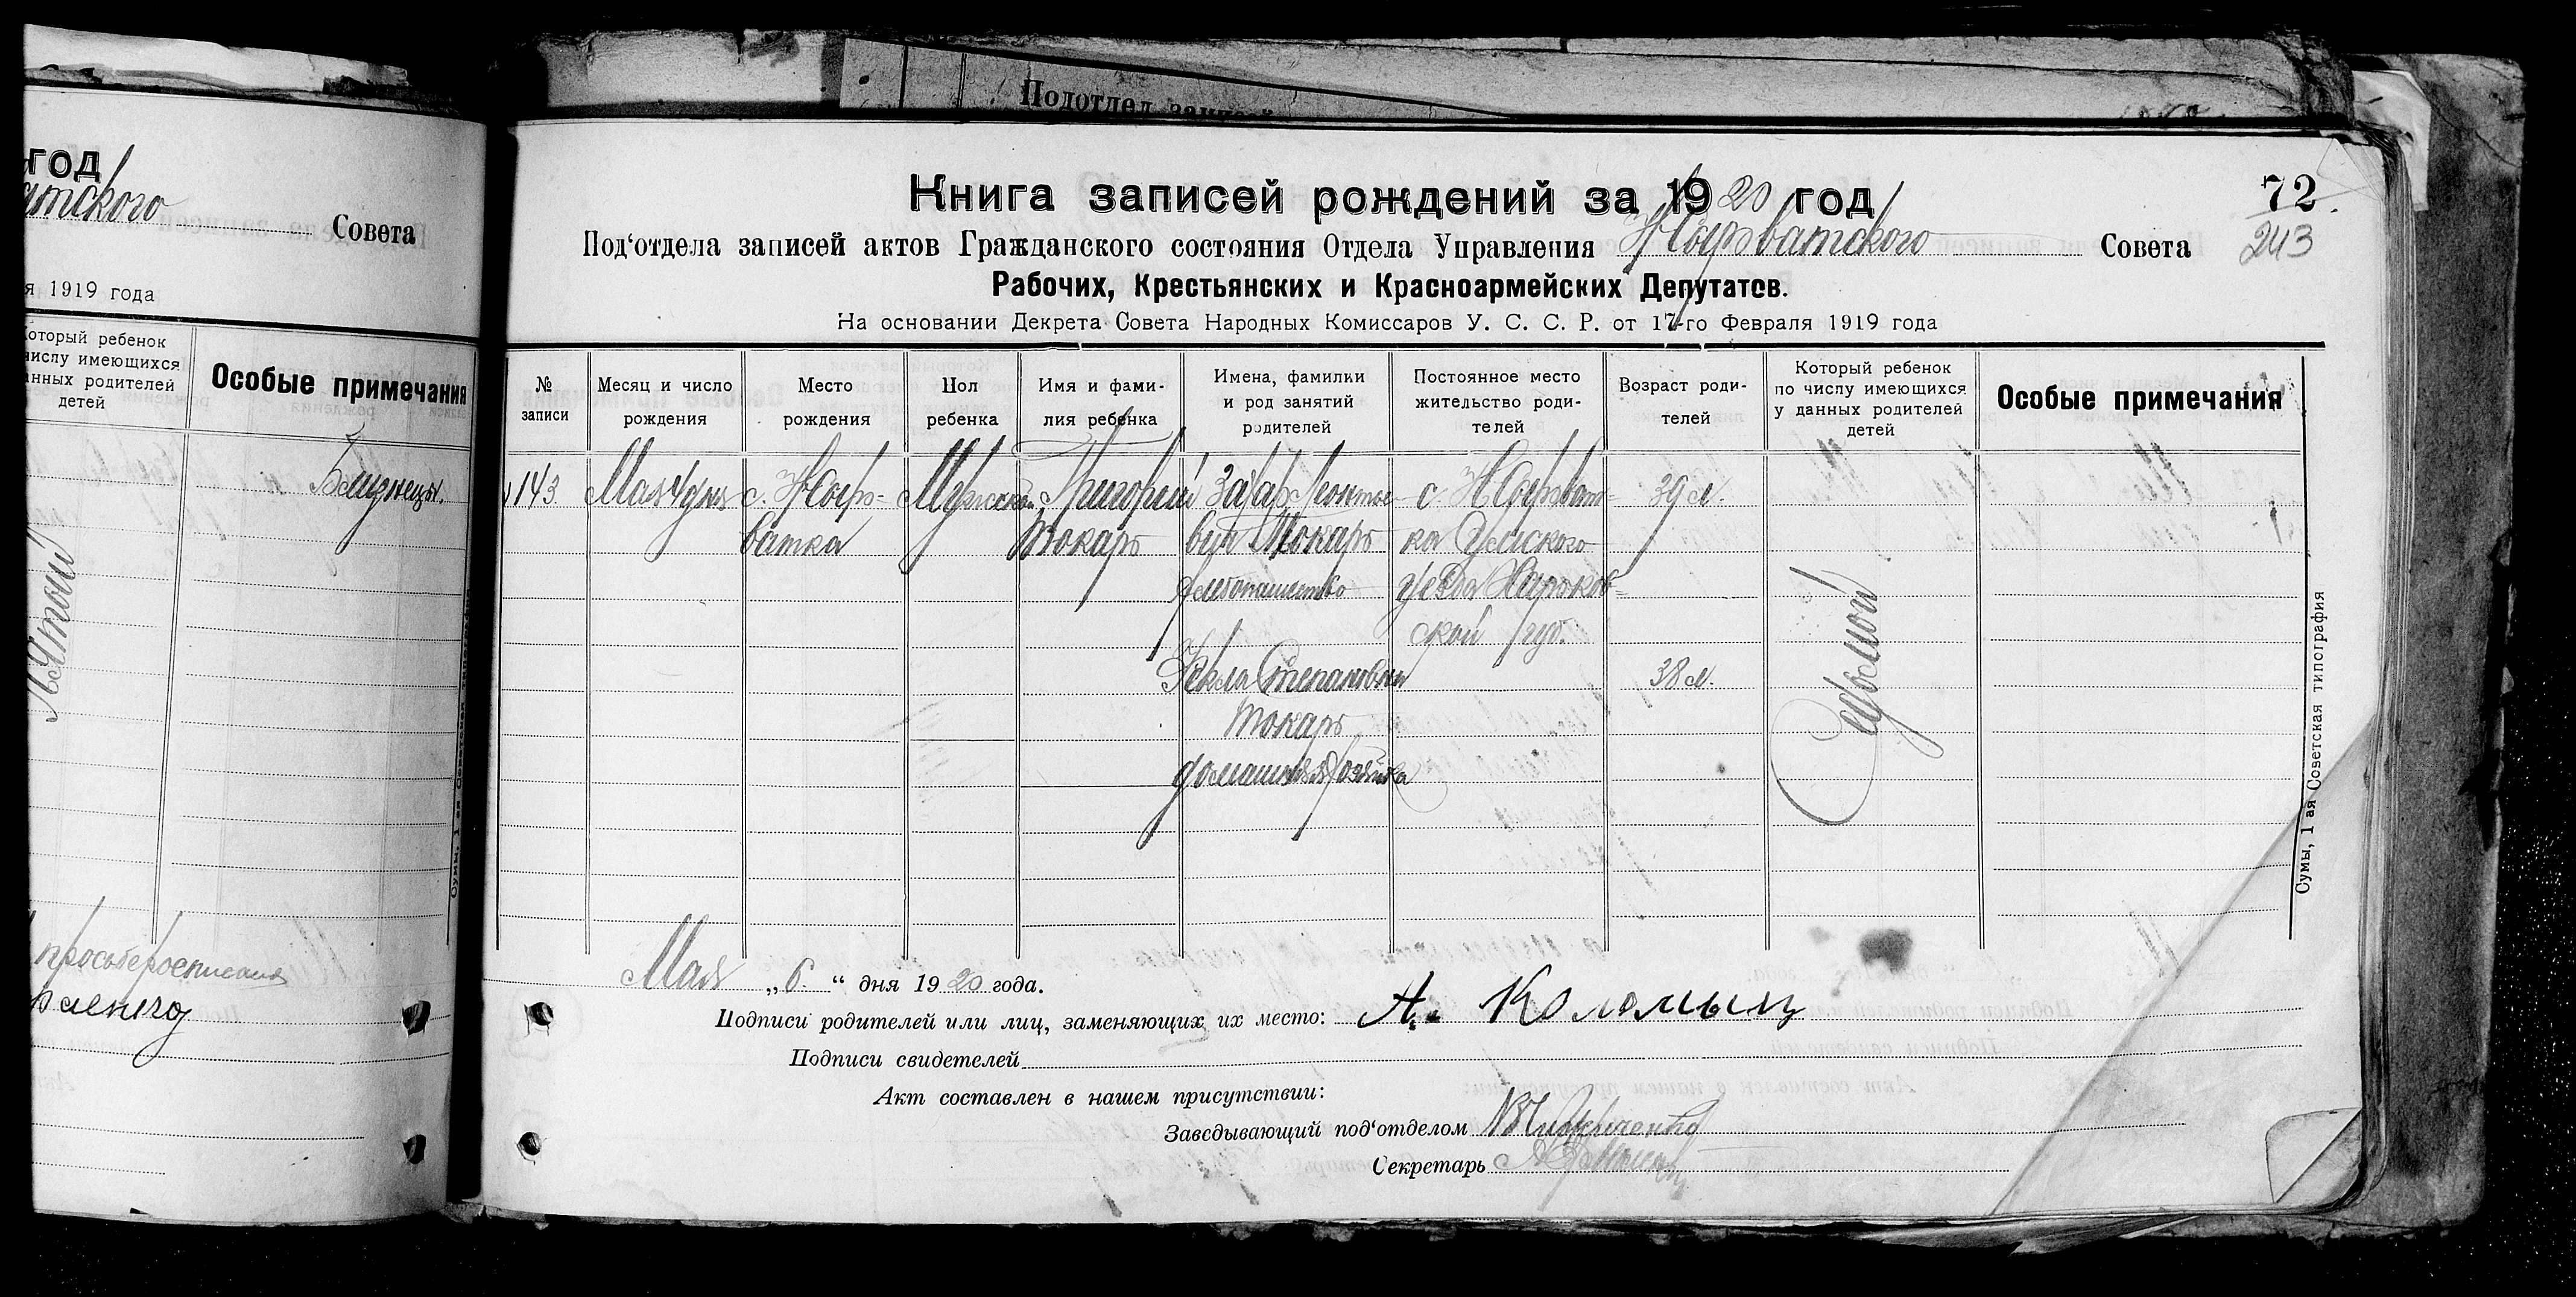 год
атского Совета
я 1919 года
Который ребенок
числу имеющихся
данных родителей
детей
Особые примечания
Близнецы.
Пятый
Подотдел записей
Книга записей рождений за 1920 год
72
Под'отдела записей актов Гражданского состояния Отдела Управления Юнарватского Совета
243
Рабочих, Крестьянских и Красноармейских Депутатов.
На основании Декрета Совета Народных Комиссаров У. С. С. Р. от 17-го Февраля 1919 года
№ записи
Месяц и число рождения
Место рождения
Пол ребенка
Имя и фамилия ребенка
Имена, фамилии и род занятий родителей
Постоянное место жительство родителей
Возраст родителей
Который ребенок по числу имеющихся у данных родителей детей
Особые примечания
143.
Мая 4 дня
с.
ватка
Мужской
Григорий
Токарь
Захар Леонтье-
вич Токарь
хлебопашество
Фекла Степановна
Токарь
домашняя хозяйка
с.
ка Сумского
уезда Харьков-
ской губ.
39 л.
38 л.
Седьмой
Сумы, 1 ая Советская типография
Мая „6.“ дня 1920 года.
Подписи родителей или лиц, заменяющих их место: А. Коломыц
Подписи свидетелей
Акт составлен в нашем присутствии:
Заведывающий под'отделом
Секретарь